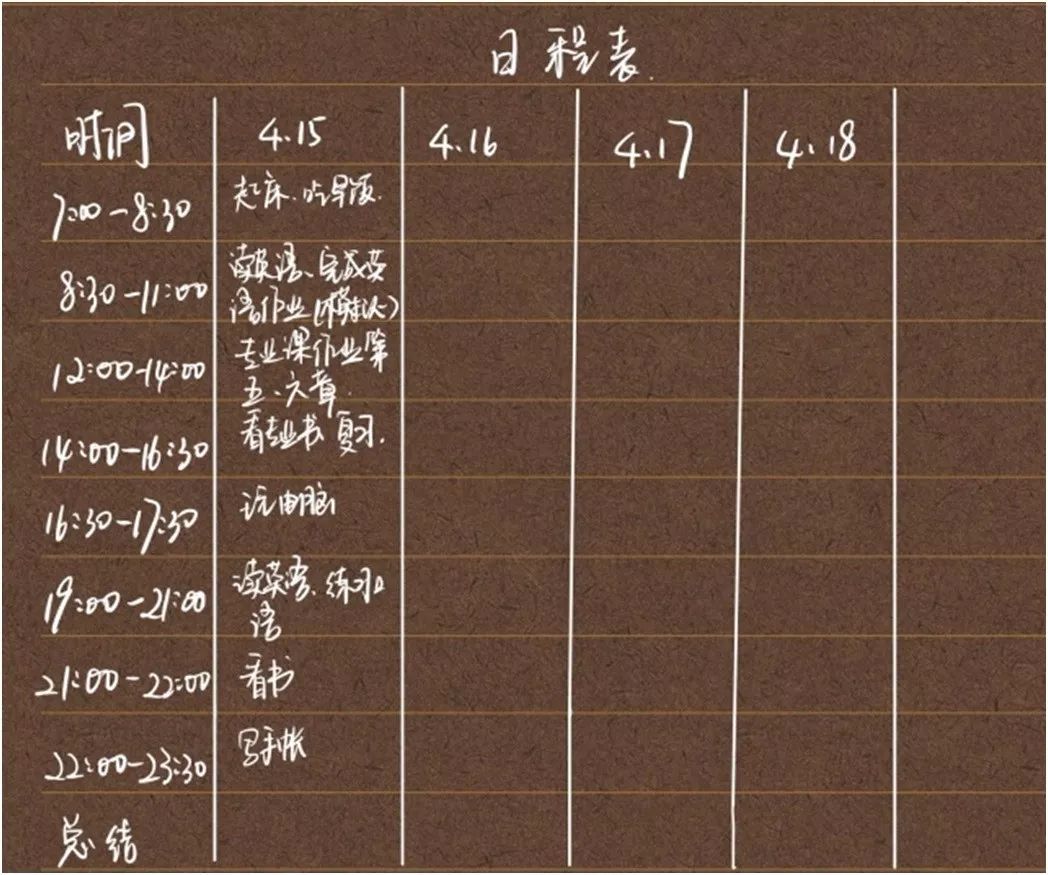 日程表.
时间 4.15 4.16 4.17 4.18
7:00-8:30 起床.吃早饭.
8:30-11:00 读英语、完成英
语作业(模拟)
12:00-14:00 专业课作业第
五、六章.
14:00-16:30 看专业书 复习.
16:30-17:30 玩电脑
19:00-21:00 读英语、练习口
语
21:00-22:00 看书
22:00-23:30 写手帐
总结